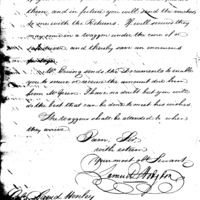 them, and in future you will send the invoices
with the Returns. If well secured they
may come in a waggon under the care of a
and thereby save an immense
Mr. Ewing sends the Documents to enable
you to secure or receive the amount due him
from Mr Green. I have no doubt but you will
do the best that can be done to meet his wishes.
The waggons shall be attended to when
they arrive
I am, Sir,
with esteem
Your most ob Servant
Samuel Hodgdon
David Henley